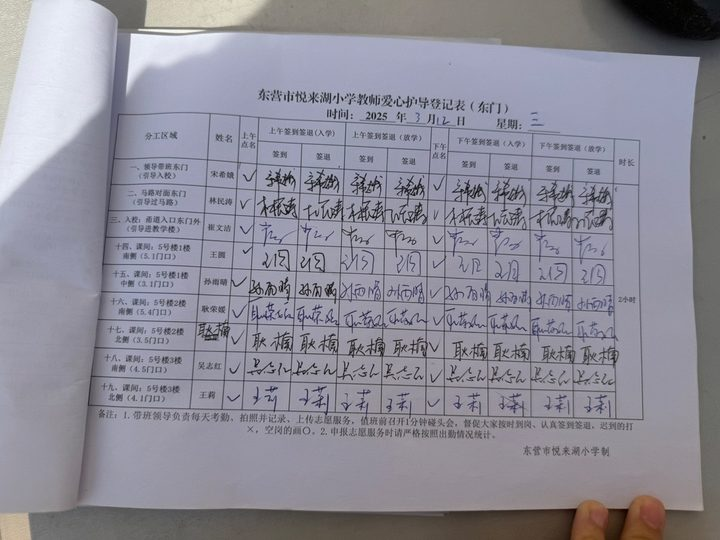 东营市悦来湖小学教师爱心护导登记表（东门）
时间: 2025 年 3 月 12 日 星期: 三
分工区域 姓名 上午点名 上午签到签退(入学) 上午签到签退（放学） 下午点名 下午签到签退(入学) 下午签到签退（放学） 时长
签到 签退 签到 签退 签到 签退 签到 签退
一、领导带班东门（引导入校） 宋希娥 ✓ 宋希娥 宋希娥 宋希娥 宋希娥 ✓ 宋希娥 宋希娥 宋希娥 宋希娥
二、马路对面东门（引导过马路） 林民涛 ✓ 林民涛 林民涛 林民涛 林民涛 ✓ 林民涛 林民涛 林民涛 林民涛
三、入校：甬道入口东门外（引导进教学楼） 崔文洁 ✓ ✓
十四、课间：5号楼1楼南侧（5.1门口） 王圆 ✓ 王圆 王圆 王圆 王圆 ✓ 王圆 王圆 王圆 王圆
十五、课间：5号楼1楼中侧（3.1门口） 孙雨晴 ✓ 孙雨晴 孙雨晴 孙雨晴 孙雨晴 ✓ 孙雨晴 孙雨晴 孙雨晴 孙雨晴
2小时
十六、课间：5号楼2楼南侧（5.4门口） 耿荣媛 ✓ 耿荣媛 耿荣媛 耿荣媛 耿荣媛 ✓ 耿荣媛 耿荣媛 耿荣媛 耿荣媛
十七、课间：5号楼2楼北侧（3.5门口） 耿楠 ✓ 耿楠 耿楠 耿楠 耿楠 ✓ 耿楠 耿楠 耿楠 耿楠
十八、课间：5号楼3楼南侧（4.5门口） 吴志红 ✓ 吴志红 吴志红 吴志红 吴志红 ✓ 吴志红 吴志红 吴志红 吴志红
十九、课间：5号楼3楼北侧（4.1门口） 王莉 ✓ 王莉 王莉 王莉 王莉 ✓ 王莉 王莉 王莉 王莉
备注：1.带班领导负责每天考勤、拍照并记录，上传志愿服务，值班前召开1分钟碰头会，督促大家按时到岗、认真签到签退，迟到的打
×，空岗的画〇。2.申报志愿服务时请严格按照出勤情况统计。
东营市悦来湖小学制